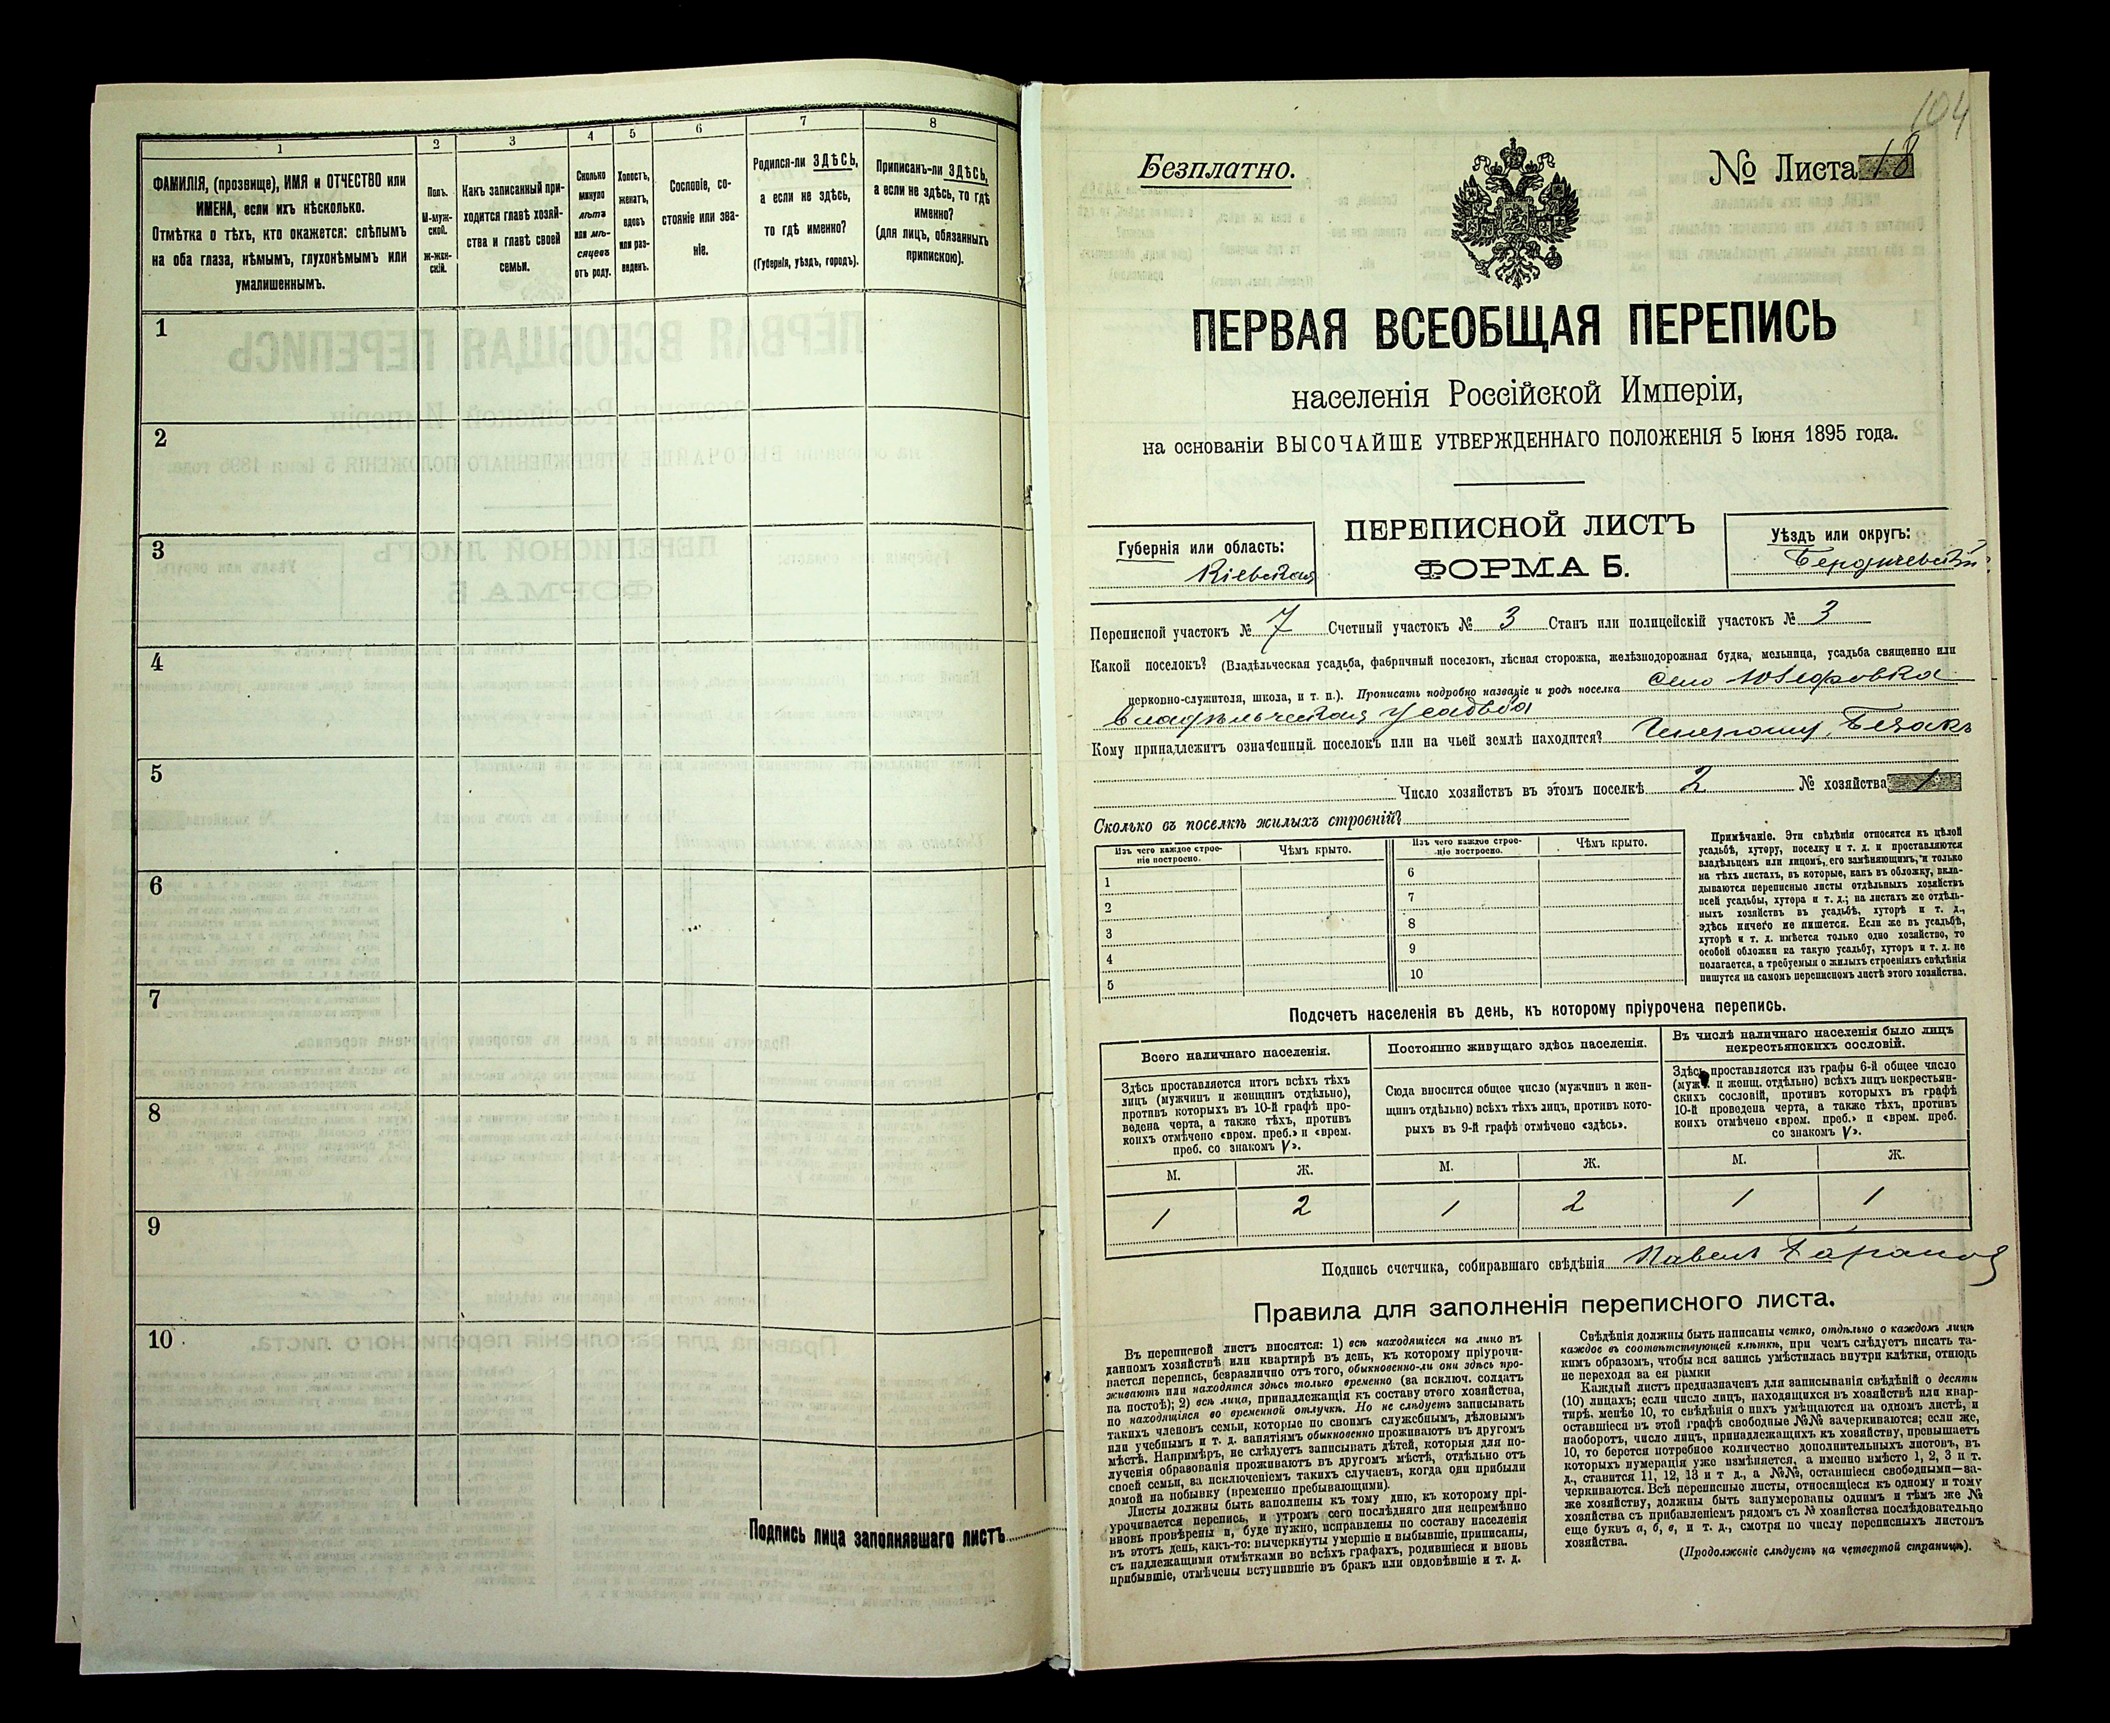 1
2
3
4
5
6
7
8
ФАМИЛІЯ, (прозвище), ИМЯ и ОТЧЕСТВО или
ИМЕНА, если ихъ нѣсколько.
Отмѣтка о тѣхъ, кто окажется: слѣпымъ
на оба глаза, нѣмымъ, глухонѣмымъ или
умалишеннымъ.
Полъ.
М-муж-
ской.
Ж-жен-
скій.
Какъ записанный при-
ходится главѣ хозяй-
ства и главѣ своей
семьи.
Сколько
минуло
лѣтъ
или мѣ-
сяцевъ
отъ роду.
Холостъ,
женатъ,
вдовъ
или раз-
веденъ.
Сословіе, со-
стояніе или зва-
ніе.
Родился-ли ЗДѢСЬ,
а если не здѣсь,
то гдѣ именно?
(Губернія, уѣздъ, городъ).
Приписанъ-ли ЗДѢСЬ,
а если не здѣсь, то гдѣ
именно?
(для лицъ, обязанныхъ
припискою).
1
2
3
4
5
6
7
8
9
10
Подпись лица заполнявшаго листъ
104
Безплатно.
№ Листа 18
ПЕРВАЯ ВСЕОБЩАЯ ПЕРЕПИСЬ
населенія Россійской Имперіи,
на основаніи ВЫСОЧАЙШЕ УТВЕРЖДЕННАГО ПОЛОЖЕНІЯ 5 Іюня 1895 года.
ПЕРЕПИСНОЙ ЛИСТЪ
ФОРМА Б.
Губернія или область:
Кіевская
Уѣздъ или округъ:
Бердичевскій
Переписной участокъ № 7 Счетный участокъ № 3 Станъ или полицейскій участокъ № 3
Какой поселокъ? (Владѣльческая усадьба, фабричный поселокъ, лѣсная сторожка, желѣзнодорожная будка, мельница, усадьба священно или
церковно-служителя, школа, и т. п.). Прописать подробно названіе и родъ поселка село Юзефовка
владѣльческая усадьба
Кому принадлежитъ означенный поселокъ или на чьей землѣ находится? Безакъ
Число хозяйствъ въ этомъ поселкѣ 2 № хозяйства 1
Сколько въ поселкѣ жилыхъ строеній?
Изъ чего каждое строе-
ніе построено.
Чѣмъ крыто.
Изъ чего каждое строе-
ніе построено.
Чѣмъ крыто.
1
2
3
4
5
6
7
8
9
10
Примѣчаніе. Эти свѣдѣнія относятся къ цѣлой
усадьбѣ, хутору, поселку и т. д. и проставляются
владѣльцемъ или лицомъ, его замѣняющимъ, и только
на тѣхъ листахъ, въ которые, какъ въ обложку, вкла-
дываются переписные листы отдѣльныхъ хозяйствъ
всей усадьбы, хутора и т. д.; на листахъ же отдѣль-
ныхъ хозяйствъ въ усадьбѣ, хуторѣ и т. д.,
здѣсь ничего не пишется. Если же въ усадьбѣ,
хуторѣ и т. д. имѣется только одно хозяйство, то
особой обложки на такую усадьбу, хуторъ и т. д. не
полагается, а требуемыя о жилыхъ строеніяхъ свѣдѣнія
пишутся на самомъ переписномъ листѣ этого хозяйства.
Подсчетъ населенія въ день, къ которому пріурочена перепись.
Всего наличнаго населенія.
Здѣсь проставляется итогъ всѣхъ тѣхъ
лицъ (мужчинъ и женщинъ отдѣльно),
противъ которыхъ въ 10-й графѣ про-
ведена черта, а также тѣхъ, противъ
коихъ отмѣчено «врем. преб.» и «врем.
преб. со знакомъ V».
Постоянно живущаго здѣсь населенія.
Сюда вносится общее число (мужчинъ и жен-
щинъ отдѣльно) всѣхъ тѣхъ лицъ, противъ кото-
рыхъ въ 9-й графѣ отмѣчено «здѣсь».
Въ числѣ наличнаго населенія было лицъ
некрестьянскихъ сословій.
Здѣсь проставляется изъ графы 6-й общее число
(муж. и женщ. отдѣльно) всѣхъ лицъ некрестьян-
скихъ сословій, противъ которыхъ въ графѣ
10-й проведена черта, а также тѣхъ, противъ
коихъ отмѣчено «врем. преб.» и «врем. преб.
со знакомъ V».
М. Ж. М. Ж. М. Ж.
1 2 1 2 1 1
Подпись счетчика, собиравшаго свѣдѣнія Павелъ
Правила для заполненія переписного листа.
Въ переписной листъ вносятся: 1) всѣ находящіеся на лицо въ
данномъ хозяйствѣ или квартирѣ въ день, къ которому пріурочи-
вается перепись, безразлично отъ того, обыкновенно-ли они здѣсь про-
живаютъ или находятся здѣсь только временно (за исключ. солдатъ
на постоѣ); 2) всѣ лица, принадлежащія къ составу этого хозяйства,
но находящіяся во временной отлучкѣ. Но не слѣдуетъ записывать
такихъ членовъ семьи, которые по своимъ служебнымъ, дѣловымъ
или учебнымъ и т. д. занятіямъ обыкновенно проживаютъ въ другомъ
мѣстѣ. Напримѣръ, не слѣдуетъ записывать дѣтей, которыя для по-
лученія образованія проживаютъ въ другомъ мѣстѣ, отдѣльно отъ
своей семьи, за исключеніемъ такихъ случаевъ, когда они прибыли
домой на побывку (временно пребывающими).
Листы должны быть заполнены къ тому дню, къ которому прі-
урочивается перепись, и утромъ сего послѣдняго дня непремѣнно
вновь провѣрены и, буде нужно, исправлены по составу населенія
въ этотъ день, какъ-то: вычеркнуты умершіе и выбывшіе, приписаны,
съ надлежащими отмѣтками во всѣхъ графахъ, родившіеся и вновь
прибывшіе, отмѣчены вступившіе въ бракъ или овдовѣвшіе и т. д.
Свѣдѣнія должны быть написаны четко, отдѣльно о каждомъ лицѣ
каждое въ соотвѣтствующей клѣткѣ, при чемъ слѣдуетъ писать та-
кимъ образомъ, чтобы вся запись умѣстилась внутри клѣтки, отнюдь
не переходя за ея рамки
Каждый листъ предназначенъ для записыванія свѣдѣній о десяти
(10) лицахъ; если число лицъ, находящихся въ хозяйствѣ или квар-
тирѣ, менѣе 10, то свѣдѣнія о нихъ умѣщаются на одномъ листѣ, и
оставшіеся въ этой графѣ свободные №№ зачеркиваются; если же,
наоборотъ, число лицъ, принадлежащихъ къ хозяйству, превышаетъ
10, то берется потребное количество дополнительныхъ листовъ, въ
которыхъ нумерація уже измѣняется, а именно вмѣсто 1, 2, 3 и т.
д., ставится 11, 12, 13 и т д., а №№, оставшіеся свободными—за-
черкиваются. Всѣ переписные листы, относящіеся къ одному и тому
же хозяйству, должны быть занумерованы однимъ и тѣмъ же №
хозяйства съ прибавленіемъ рядомъ съ № хозяйства послѣдовательно
еще буквъ а, б, в, и т. д., смотря по числу переписныхъ листовъ
хозяйства.
(Продолженіе слѣдуетъ на четвертой страницѣ).